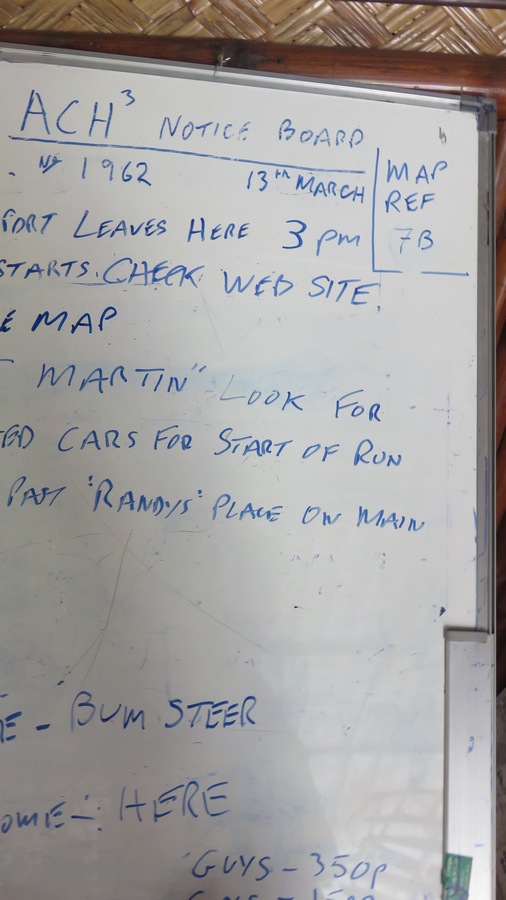 ACH³ NOTICE BOARD
. No 1962 13TH MARCH
MAP
REF
7B
PORT LEAVES HERE 3 pm
STARTS. CHECK WEB SITE
E MAP
MARTIN" LOOK FOR
ED CARS FOR START OF RUN
PAST 'RANDYS' PLACE ON MAIN
E - BUM STEER
OME -: HERE
GUYS - 350p